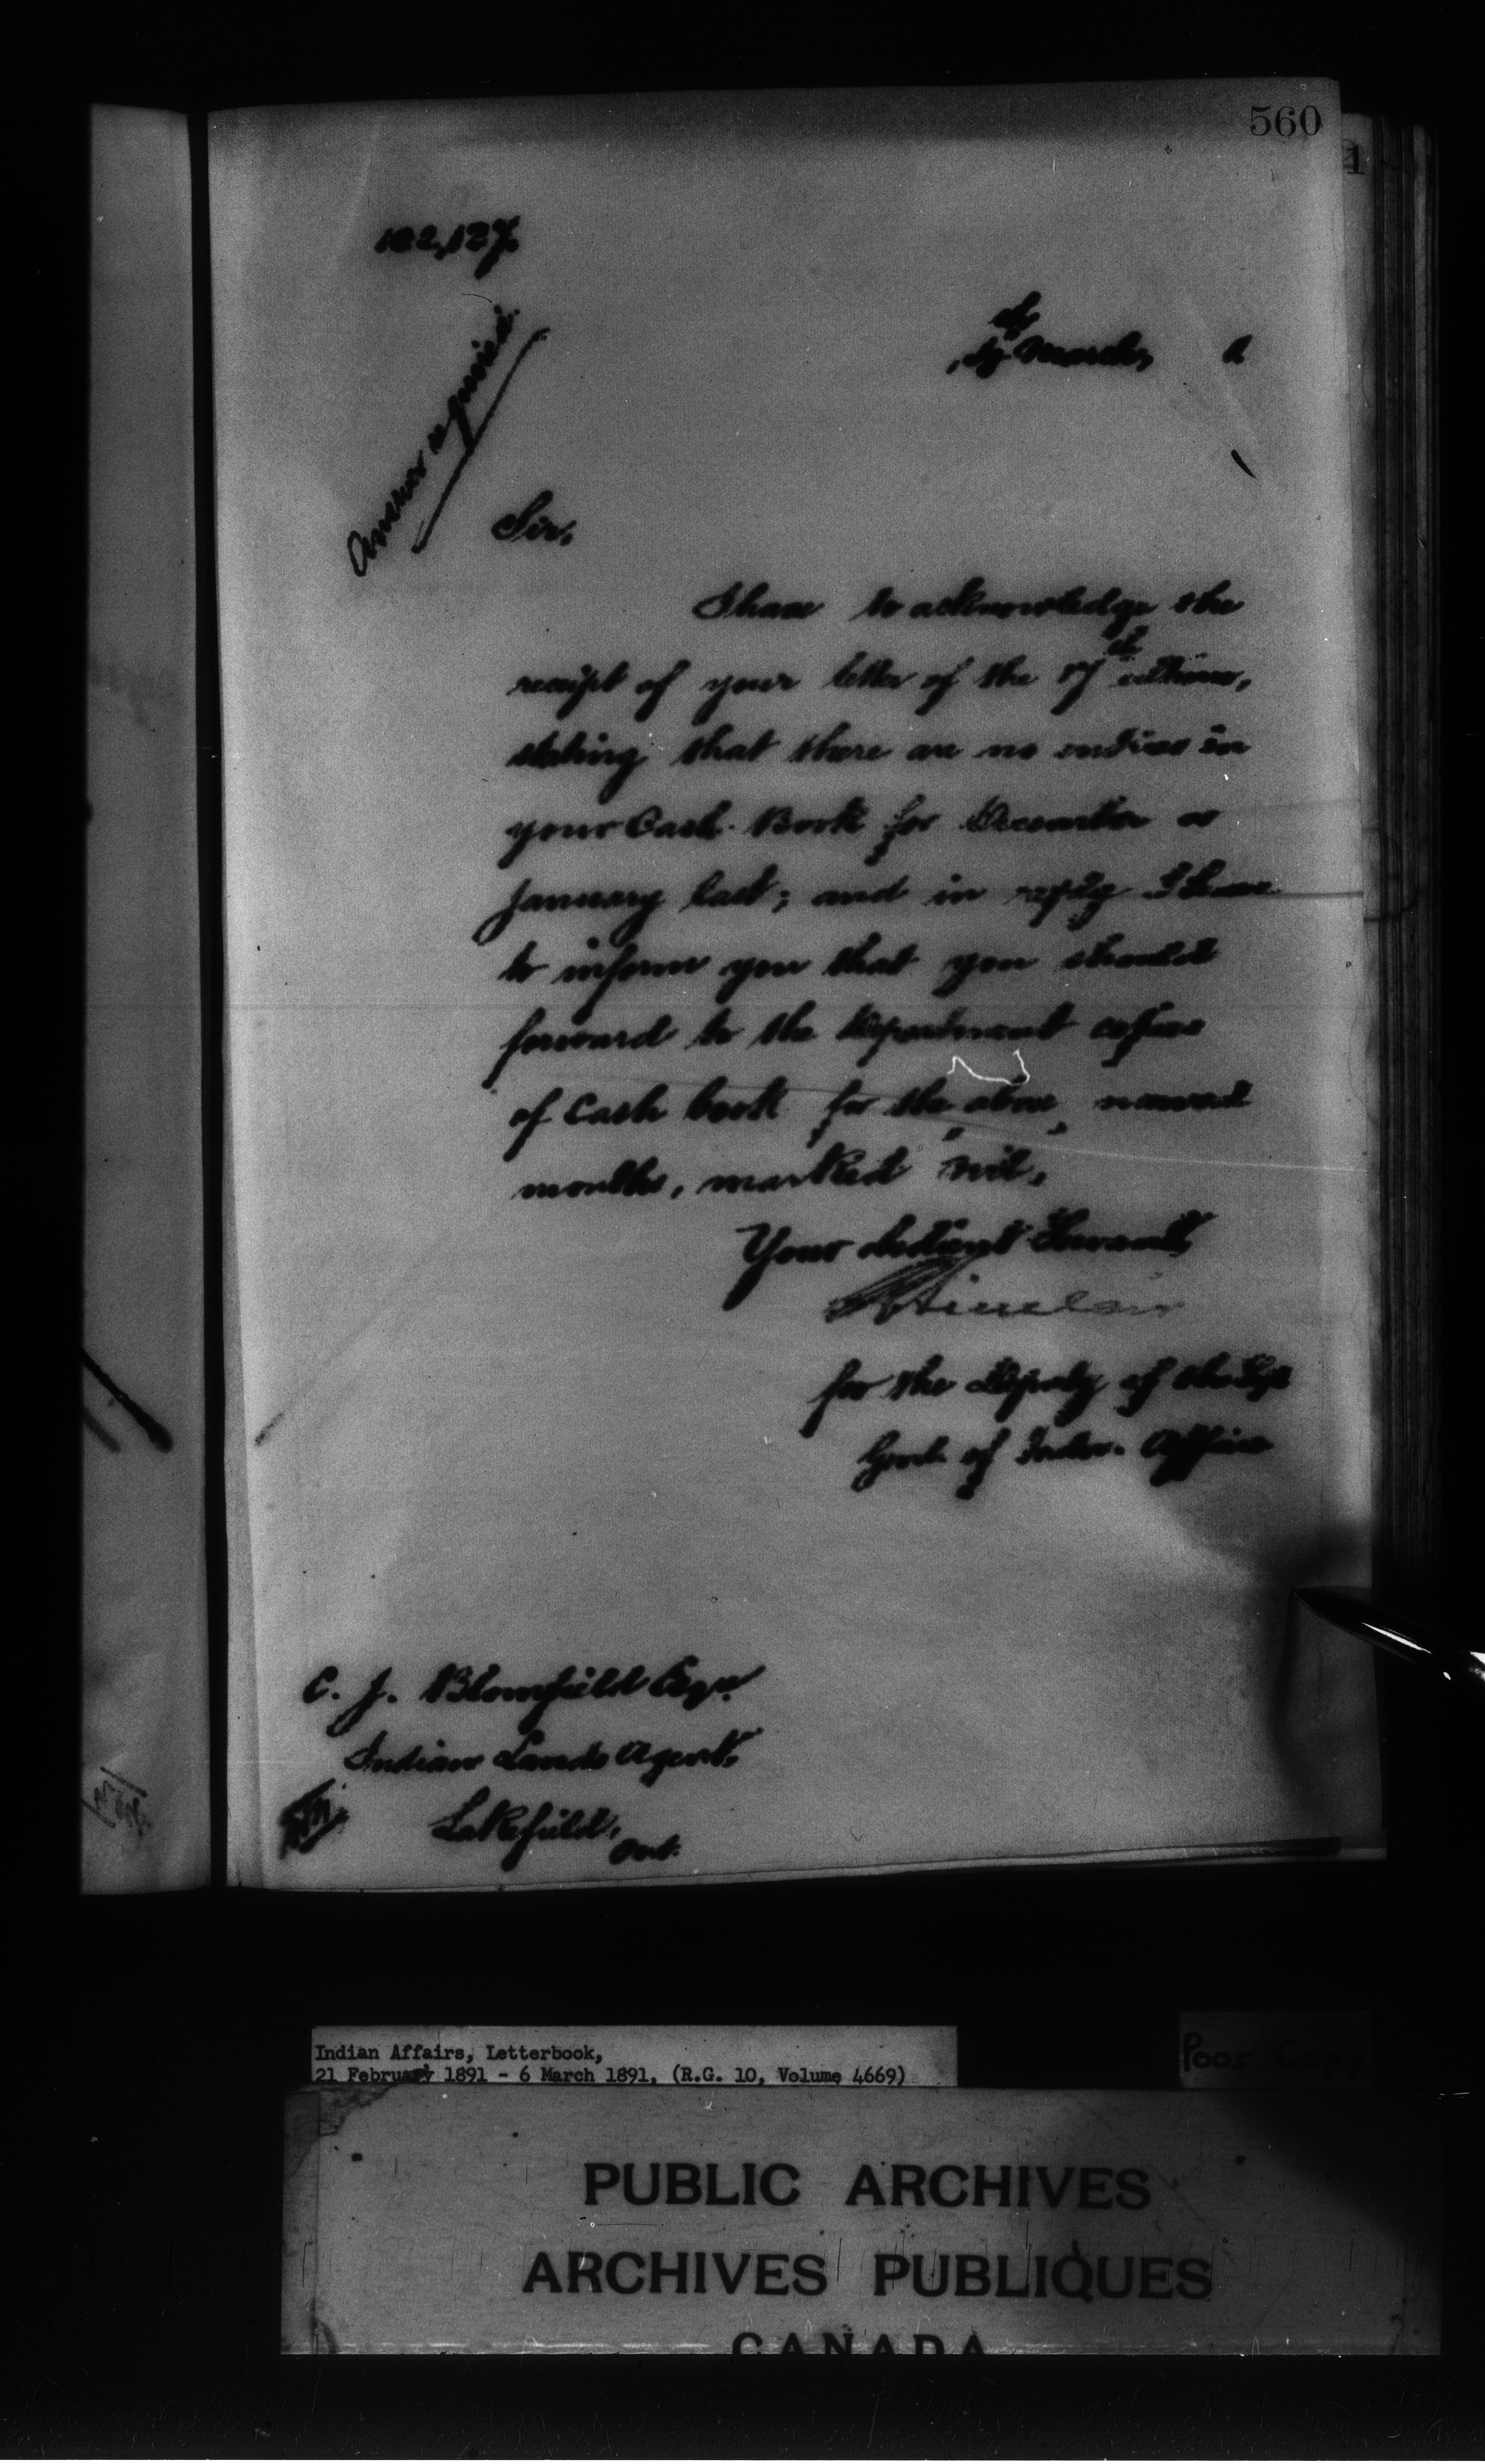 560
1
102,127
th
March, 1
Answer required.
Sir,
I have to acknowledge the
receipt of your letter of the 17th ultimo,
stating that there are no entries in
your Cash Book for December or
January last; and in reply I have
to inform you that you should
forward to the Department copies
of Cash book for the above named
months, marked "nil".
Your obedient Servant,
Sinclair
for the Deputy of the Supt
Genl. of Indn. Affairs
C. J. Blomfield Esqr.
Indian Lands Agent,
Lakefield,
Ont.
Indian Affairs, Letterbook,
21 February 1891 - 6 March 1891, (R.G. 10, Volume 4669)
Poor Copy
PUBLIC ARCHIVES
ARCHIVES PUBLIQUES
CANADA